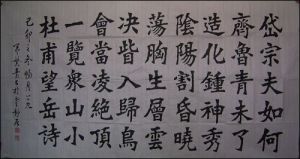 岱宗夫如何
齊魯青未了
造化鍾神秀
陰陽割昏曉
蕩胸生層雲
决眥入歸鳥
會當凌絕頂
一覽衆山小
杜甫望岳詩
己卯